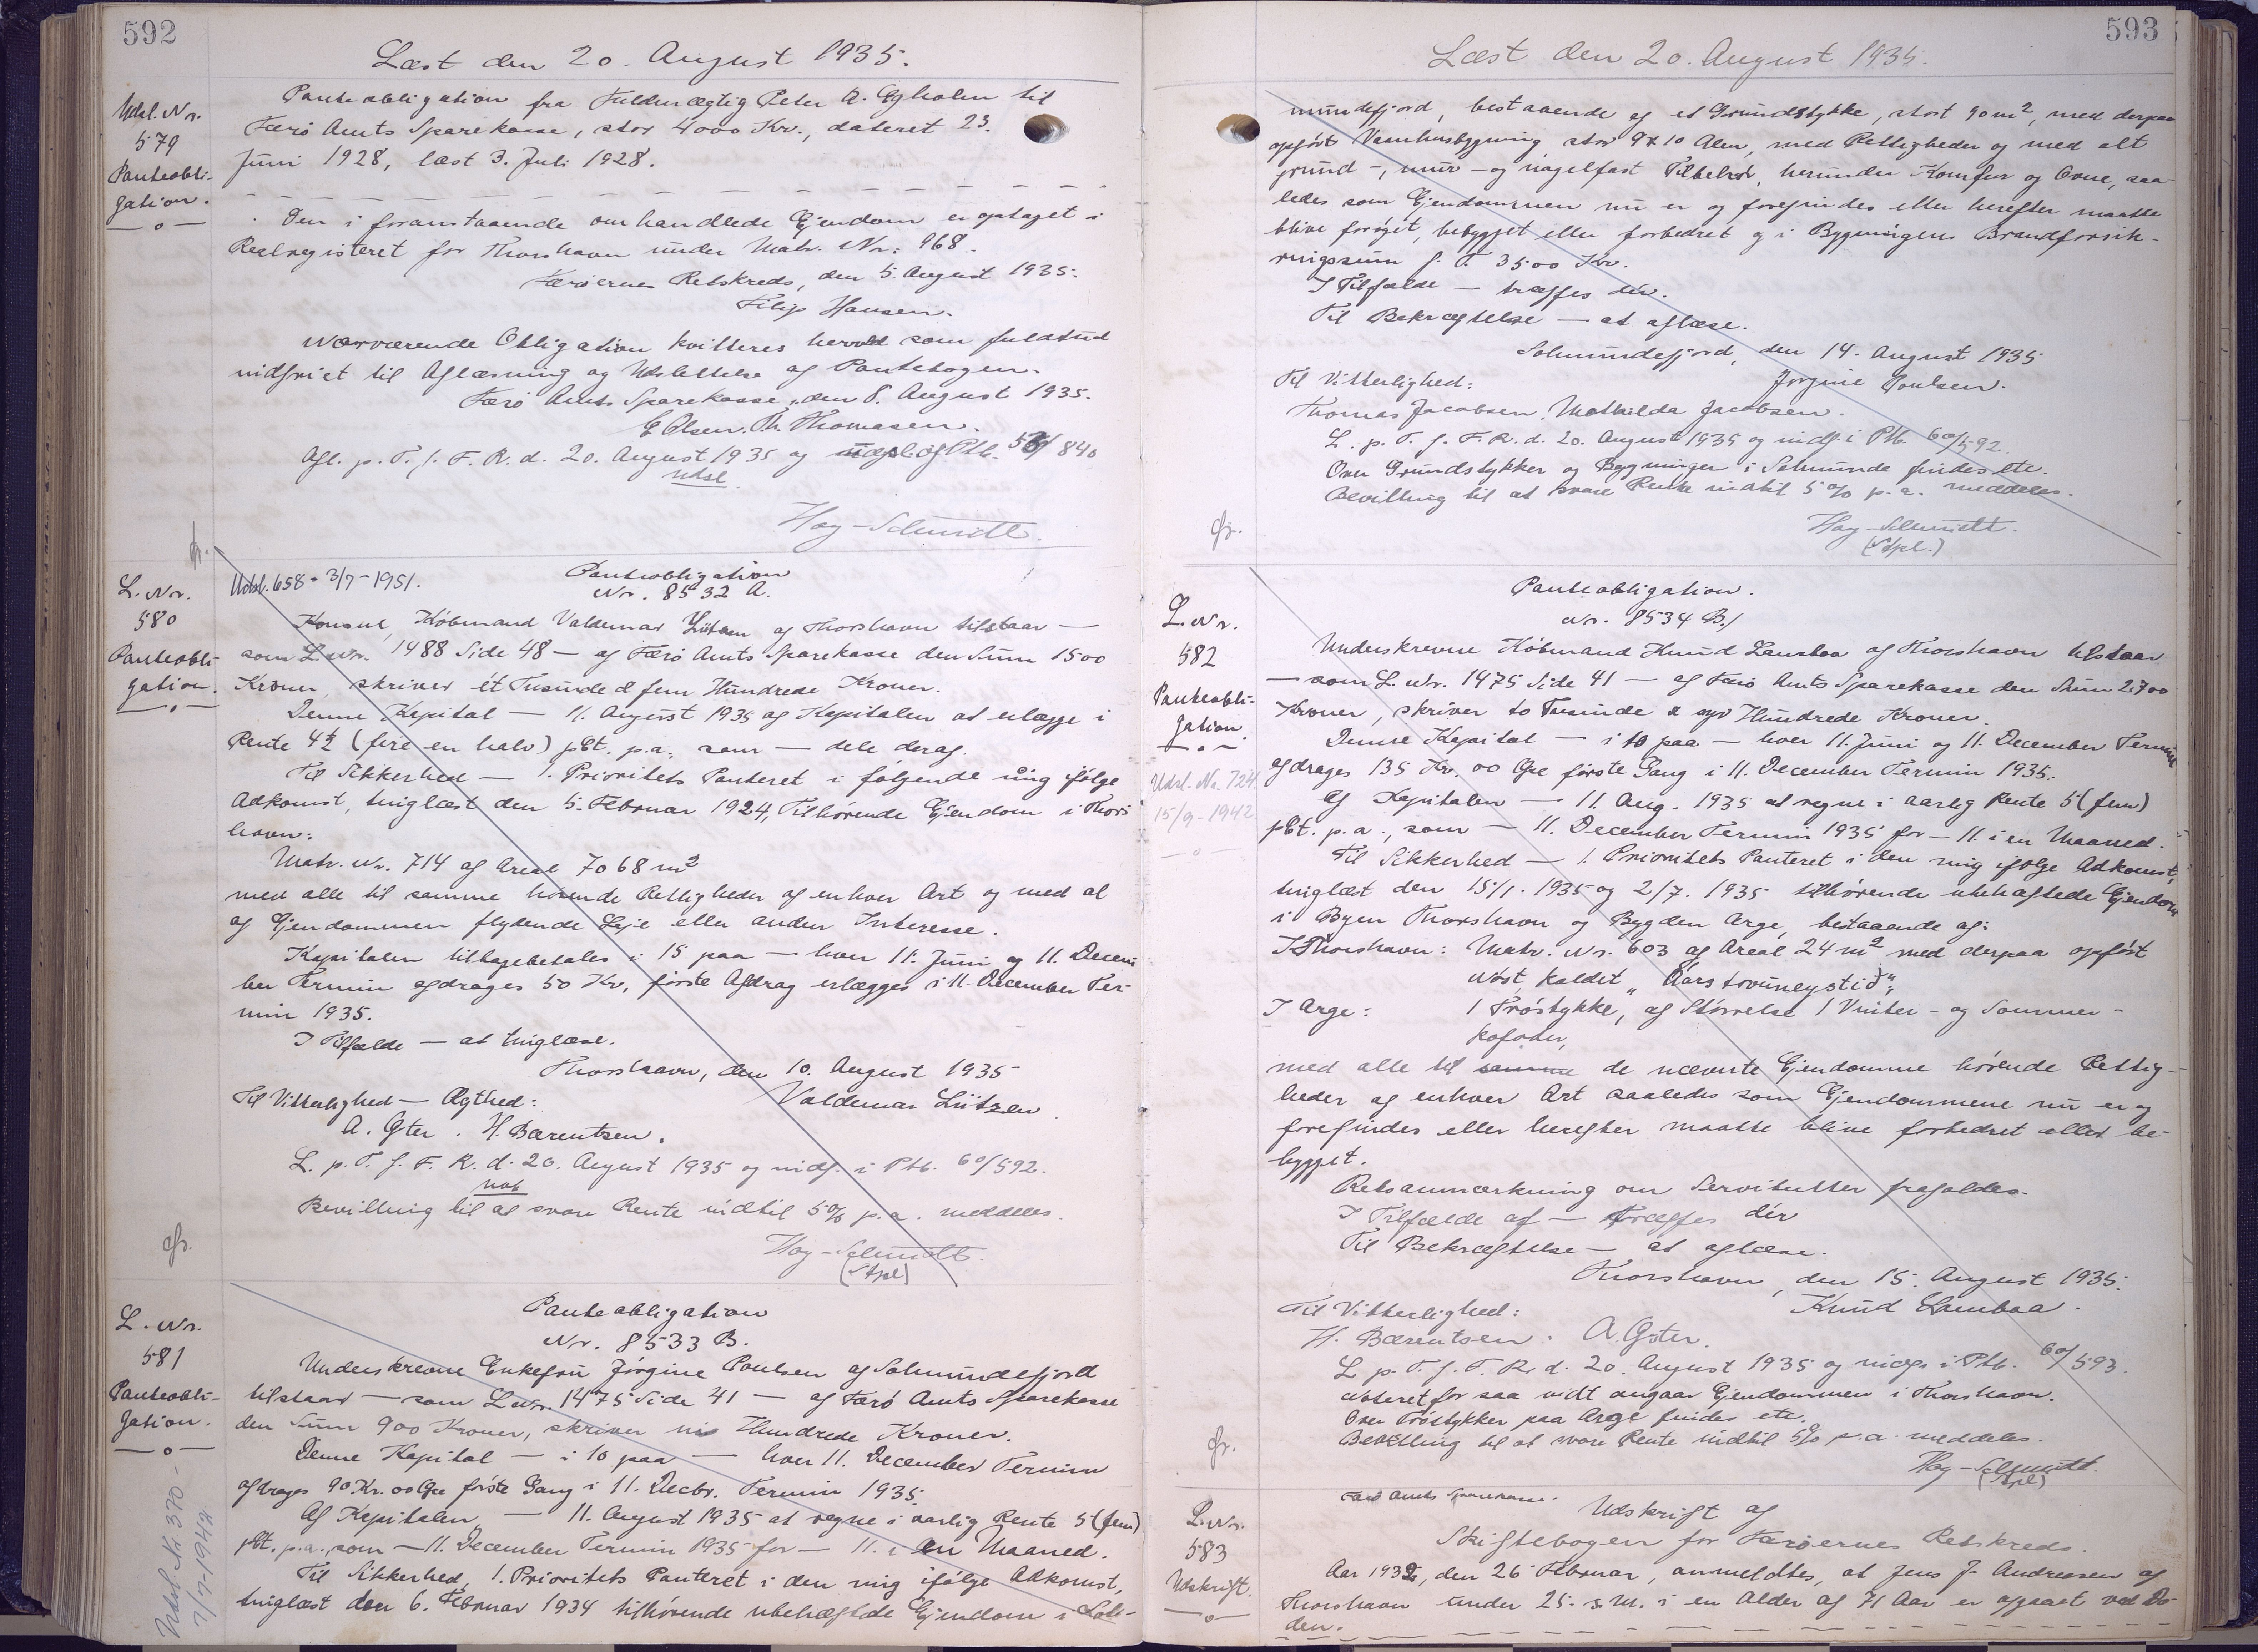 592
Læst den 20. August 1935.
Udsl. Nr.
579
Panteobli-
gation.
Panteobligation fra Fuldmægtig Peter A. Egholm til
Færø Amts Sparekasse, stor 4000 Kr., dateret 23.
Juni 1928, læst 3. Juli 1928.
Den i foranstaaende omhandlede Ejendom er optaget i
Realregisteret for Thorshavn under Matr. Nr. 968.
Færøernes Retskreds, den 5. August 1935.
Filip Hansen.
Nærværende Obligation kvitteres herved som fuldtud
indfriet til Aflæsning og Udslettelse af Pantebogen.
Færø Amts Sparekasse, den 8. August 1935.
E Olsen. Th. Thomasen.
Afl. p. T. f. F. R. d. 20. August 1935 og af Ptb. 840
Udsl
Høy-Schmidt.
L. Nr.
580
Panteobli-
gation.
Udsl. 658 - 3/7 - 1951.
Panteobligation
Nr. 8532 A.
Konsul, Købmand Valdemar Lützen af Thorshavn tilstaar —
som L. Nr. 1488 Side 48 — af Færø Amts Sparekasse den Sum 1500
Kroner, skriver et Tusinde & fem Hundrede Kroner.
Denne Kapital — 11. August 1935 af Kapitalen at erlægge i
Rente 4½ (fire en halv) pCt. p.a. som — dele deraf.
Til Sikkerhed — 1. Prioritets Panteret i følgende mig ifølge
Adkomst, tinglæst den 5. Februar 1924, Tilhørende Ejendom i Thors
havn:
Matr. Nr. 714 af Areal 7068 m²
med alle til samme hørende Rettigheder af enhver Art og med al
af Ejendommen flydende Leje eller anden Interesse.
Kapitalen tilbagebetales i 15 paa — hver 11. Juni og 11. Decem
ber Termin afdrages 50 Kr, første Afdrag erlægges i 11. December Ter-
min 1935.
I Tilfælde — at tinglæse.
Thorshavn, den 10. August 1935
Til Vitterlighed — Ægthed: Valdemar Lützen.
A. Øster. H. Bærentsen.
L. p. T. f. F. R. d. 20. August 1935 og indf. i Ptb. 60/592.
Not
Bevilling til at svare Rente indtil 5% p.a. meddeles.
Høy-Schmidt.
(Stpl)
L. Nr.
581
Panteobli-
gation.
Udsl. Nr. 370 -
7/7-1942
Panteobligation
Nr. 8533 B.
Underskrevne Enkefru Jørgine Poulsen af Solmundefjord
tilstaar — som L. Nr. 1475 Side 41 — af Færø Amts Sparekasse
den Sum 900 Kroner, skriver ni Hundrede Kroner.
Denne Kapital — i 10 paa — hver 11. December Termin
afdrages 90 Kr. 00 Øre første Gang i 11. Decbr. Termin 1935.
Af Kapitalen — 11. August 1935 at regne i aarlig Rente 5 (fem)
pCt. p.a. som — 11. December Termin 1935 for — 11. i en Maaned.
Til Sikkerhed, 1. Prioritets Panteret i den mig ifølge Adkomst,
tinglæst den 6. Februar 1934 tilhørende ubehæftede Ejendom i Sol-
593
Læst den 20. August 1935.
mundefjord, bestaaende af et Grundstykke, stort 90 m², med derpaa
opført Vaanhusbygning stor 9 x 10 Alen, med Rettigheder og med alt
grund-, mur- og nagelfast Tilbehør, herunder Komfur og Ovne, saa-
ledes som Ejendommen nu er og forefindes eller herefter maatte
blive forøget, bebygget eller forbedret og i Bygningens Brandforsik-
ringssum f. T. 3500 Kr.
I Tilfælde — træffes dér.
Til Bekræftelse — at aflæse.
Solmundefjord, den 14. August 1935
Til Vitterlighed: Jørgine Poulsen.
Thomas Jacobsen, Mathilda Jacobsen.
L. p. T. f. F. R. d. 20. August 1935 og indf. i Ptb. 60/592.
Over Grundstykker og Bygninger i Solmunde findes etc.
Bevilling til at svare Rente indtil 5% p.a. meddeles.
Høy-Schmidt.
(Stpl.)
L. Nr.
582
Panteobli-
gation.
Udsl. Nr. 724
15/9 - 1942
Panteobligation.
Nr. 8534 B./
Underskrevne Købmand Knud Lamhaa af Thorshavn tilstaar
— som L. Nr. 1475 Side 41 — af Færø Amts Sparekasse den Sum 2700
Kroner, skriver to Tusinde & syv Hundrede Kroner.
Denne Kapital — i 10 paa — hver 11. Juni og 11. December Termin
afdrages 135 Kr. 00 Øre første Gang i 11. December Termin 1935.
Af Kapitalen — 11. Aug. 1935 at regne i aarlig Rente 5 (fem)
pCt. p.a., som — 11. December Termin 1935 for — 11. i en Maaned.
Til Sikkerhed — 1. Prioritets Panteret i den mig ifølge Adkomst,
tinglæst den 15/1. 1935 og 2/7. 1935 tilhørende ubehæftede Ejendom
i Byen Thorshavn og Bygden Arge, bestaaende af:
I Thorshavn: Matr. Nr. 603 af Areal 24 m² med derpaa opført
Nøst, kaldet
I Arge: 1 Trøstykke, af Størrelse 1 Vinter- og Sommer-
kofoder,
med alle til samme de nævnte Ejendomme hørende Rettig-
heder af enhver Art saaledes som Ejendommene nu er og
forefindes eller herefter maatte blive forbedret eller be-
bygget.
Retsanmærkning om Servitutter frafaldes.
I Tilfælde af — træffes dér
Til Bekræftelse — at aflæse.
Thorshavn, den 15. August 1935.
Til Vitterlighed: Knud Lamhaa.
H. Bærentsen. A. Øster.
L. p. T. f. F. R. d. 20. August 1935 og indf. i Ptb. 60/593.
Noteret for saa vidt angaar Ejendommen i Thorshavn.
Over Trøstykker paa Arge findes etc.
Bevilling til at svare Rente indtil 5% p.a. meddeles.
Høy-Schmidt.
(Stpl)
L. Nr.
583
Udskrift.
Færø Amts Sparekasse.
Udskrift af
Skiftebogen for Færøernes Retskreds.
Aar 1932, den 26 Februar, anmeldtes, at Jens J. Andreasen af
Thorshavn under 25. s. M. i en Alder af 71 Aar er afgaaet ved Dø-
den.